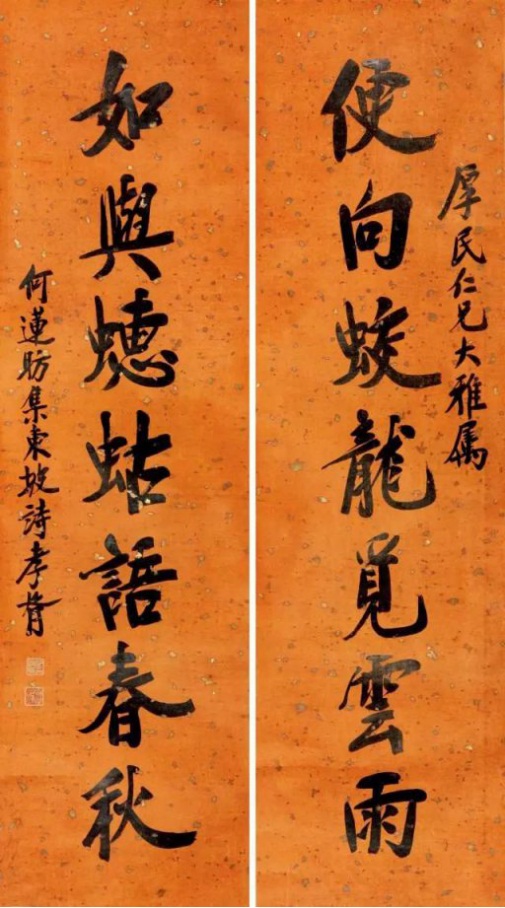 厚民仁兄大雅属
便向蛟龍覓雲雨
如與蟪蛄語春秋
何蓮昉集東坡詩孝胥